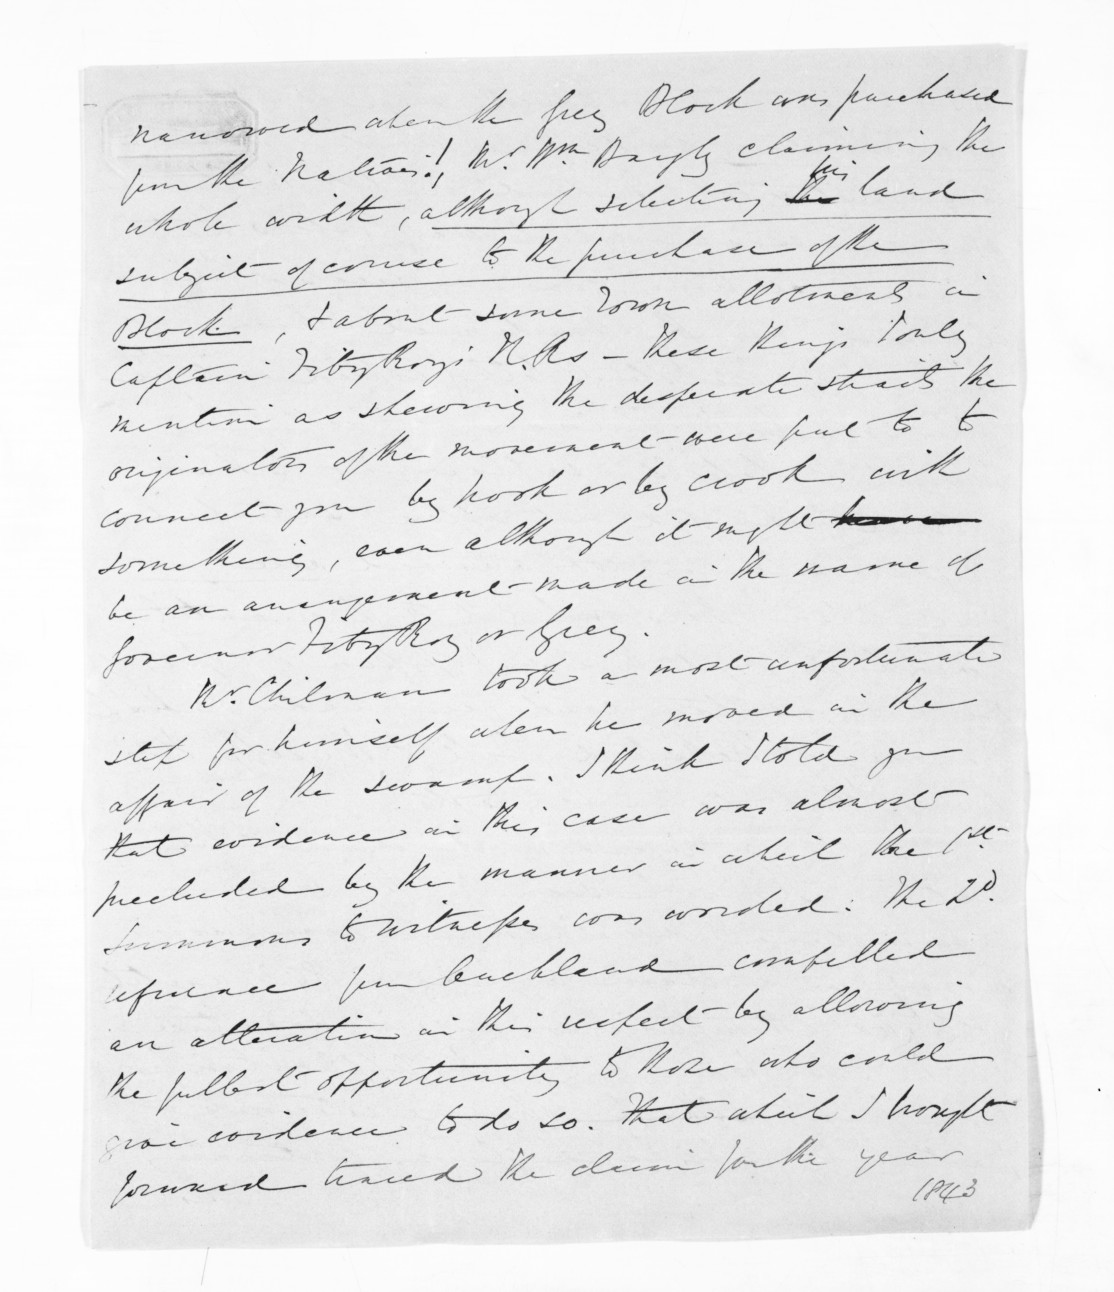 narrowed when the Grey Block was purchased
from the Natives!, Mr. Wm Bayly claiming the
whole width, although selecting the his land
subject of course to the purchase of the
Block, & about some Town allotments in
Captain FitzRoy's N.Rs — These things I only
mention as shewing the desperate straits the
originators of the movement were put to to
connect you by hook or by crook with
something, even although it might have
be an arrangement made in the name of
Governor FitzRoy or Grey.
Mr. Chilman took a most unfortunate
step for himself when he moved in the
affair of the swamp. I think I told you
that evidence in this case was almost
precluded by the manner in which the 1st.
summons to witnesses was worded: The 2d.
reference from Auckland compelled
an alteration in this respect by allowing
the fullest opportunity to those who could
give evidence to do so. That which I brought
forward traced the claim from the year
1843